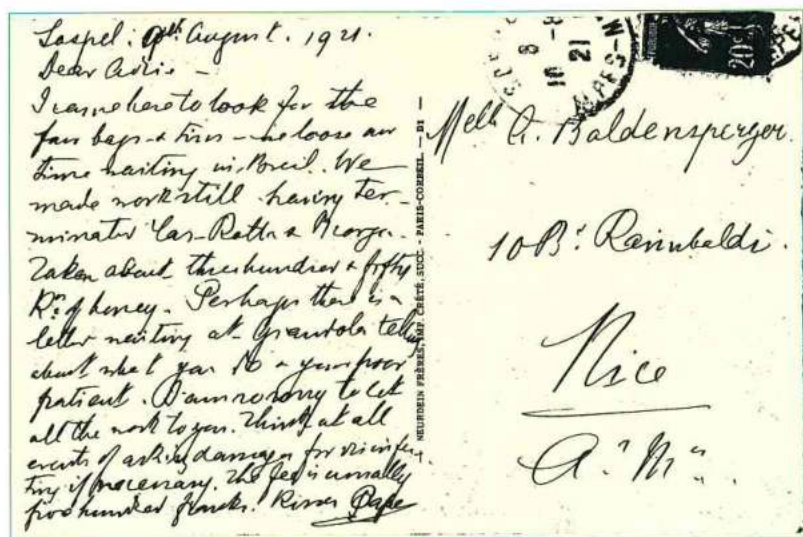 Sospel. 9th August. 1921.
Dear
I came here to look for the
time waiting in Breil. We
made work still having ter-
minated
Taken about three hundred & fifty
Kos of honey. Perhaps there is a
letter waiting at Fontan telling
about what you do & your poor
patient. I am sorry to let
all the work to you. Think at all
events of asking damages for disinfec-
ting if necessary. The fee is usually
five hundred francs. Kisses Papa
NEURDEIN FRÈRES, IMP. CRÉTÉ, SUCC. - PARIS-CORBEIL. — D1
Melle A. Baldensperger.
10 Bd. Raimbaldi.
Nice
A. "M".
10-8
21
20c